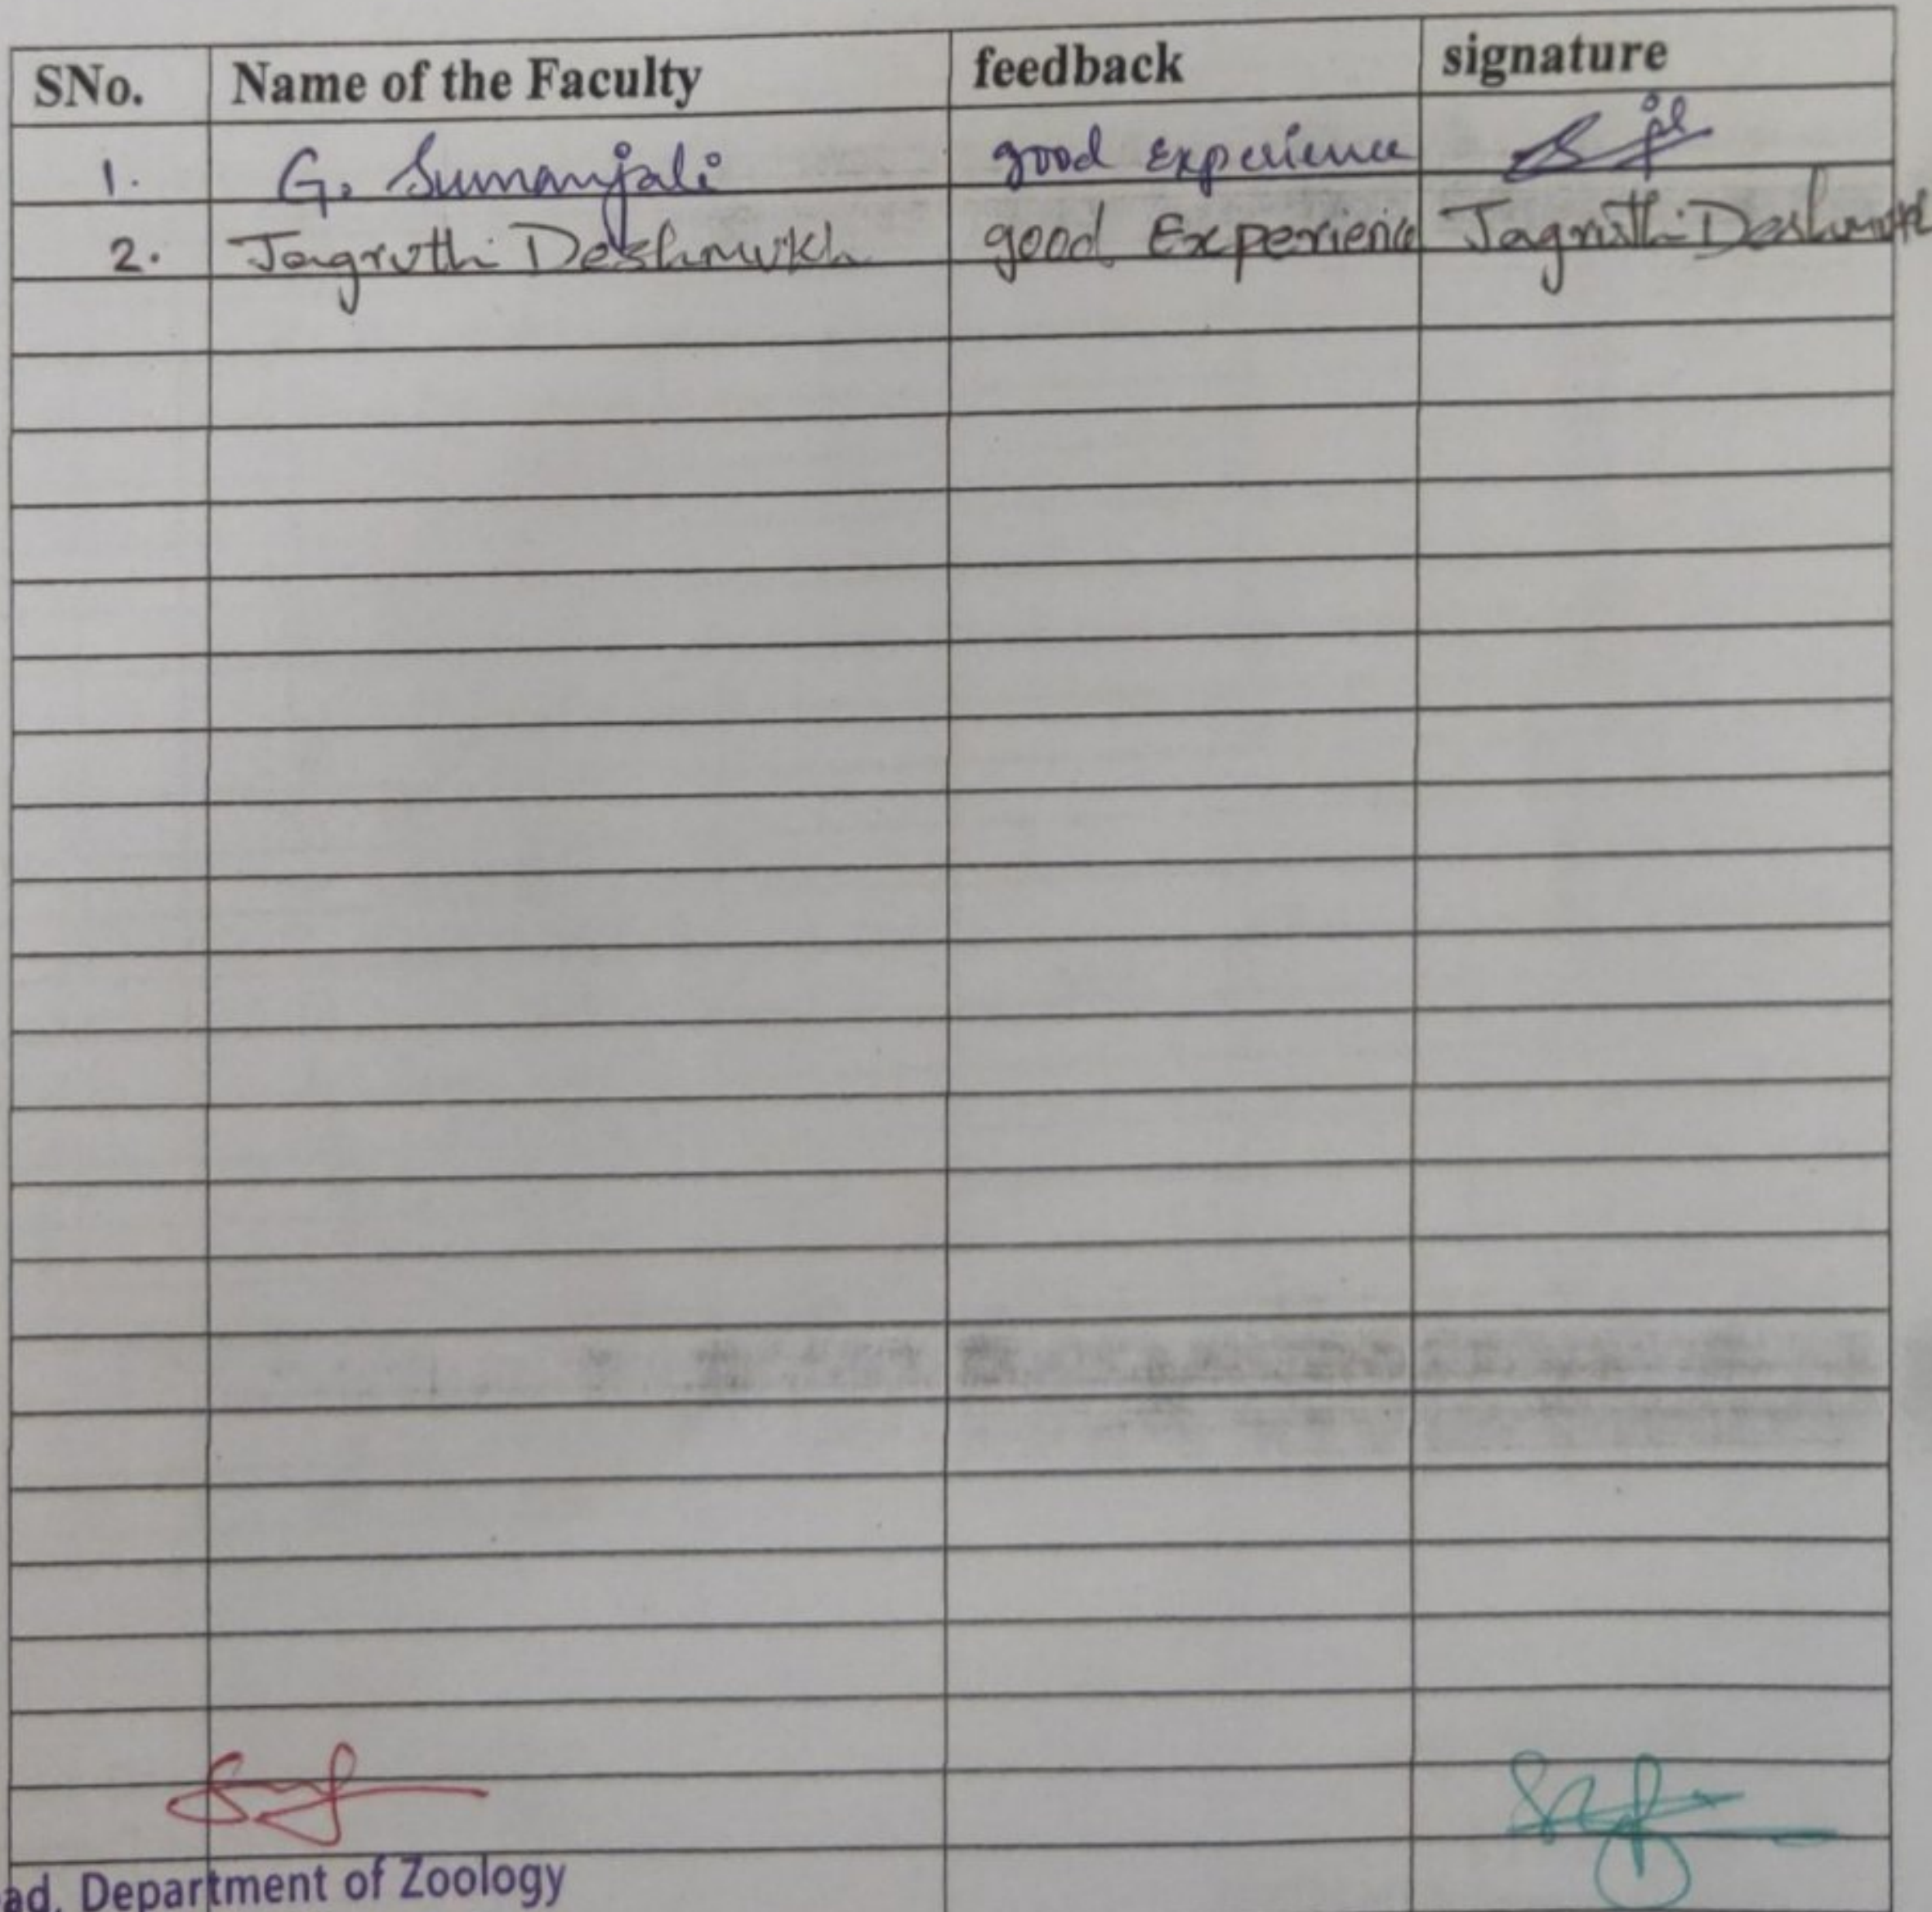 SNo. Name of the Faculty feedback signature
1. G. Sumanjali good Experience
2. Jagruthi Deshmukh good Experience Jagruthi Deshmukh
ad, Department of Zoology